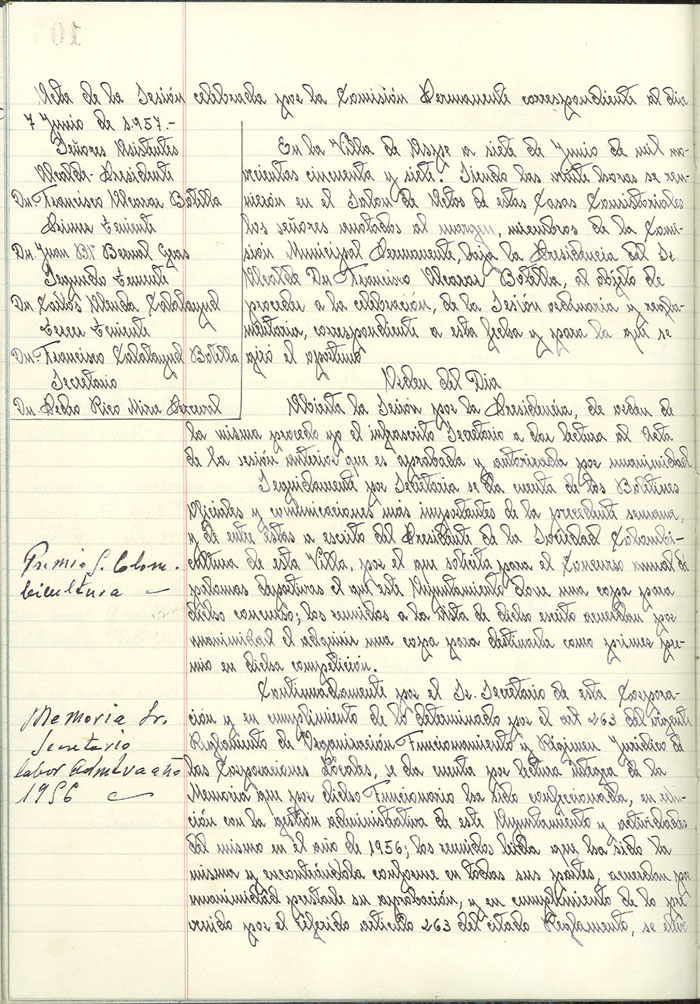 Acta de la Sesión celebrada por la Comisión Permanente correspondiente al dia
7 Junio de 1.957.-
Señores Asistentes
Alcalde-Presidente
Dn. Francisco Alcaraz Botella
Primer Teniente
Dn. Juan Btª Bernal Gras
Segundo Teniente
Dn. Carlos Calatayud
Tercer Teniente
Dn. Francisco Calatayud Botella
Secretario
Dn. Pedro Rico Mira Perceval
En la Villa de Aspe a siete de Junio de mil no-
vecientos cincuenta y siete: Siendo las veinte horas se reu-
nieron en el Salon de Actos de estas Casas Consistoriales
los señores anotados al margen, miembros de la Comi-
sión Municipal Permanente, bajo la Presidencia del Sr.
Alcalde Dn. Francisco Alcaraz Botella, al objeto de
proceder a la celebración, de la Sesión ordinaria y regla-
mentaria, correspondiente a esta fecha y para la que se
giró el oportuno
Orden del Dia
Abierta la Sesión por la Presidencia, de orden de
la misma procedo yo el infrascrito Secretario a dar lectura al Acta
de la sesión anterior que es aprobada y autorizada por unanimidad.
Seguidamente por Secretaria se da cuenta de los Boletines
Oficiales y comunicaciones más importantes de la precedente semana,
y de entre éstas a escrito del Presidente de la Sociedad Colombi-
cultura de esta Villa, por el que solicita para el Concurso anual de
palomos deportivos el que este Ayuntamiento done una copa para
dicho concurso; los reunidos a la vista de dicho escrito acuerdan por
unanimidad el adquirir una copa para destinarla como primer pre-
mio en dicha competición.
Premio S. Colom-
bicultura
Continuadamente por el Sr. Secretario de esta Corpora-
ción y en cumplimiento de lo determinado por el art 263 del vigente
Reglamento de Organización Funcionamiento y Régimen Juridico de
las Corporaciones Locales, se da cuenta por lectura integra de la
Memoria que por dicho Funcionario ha sido confeccionada, en rela-
ción con la gestión administrativa de este Ayuntamiento y actividades
del mismo en el año de 1956; los reunidos leida que ha sido la
misma y encontrándola conforme en todas sus partes, acuerdan por
unanimidad prestarle su aprobación, y en cumplimiento de lo pre-
venido por el referido articulo 263 del citado Reglamento, se eleve
Memoria Sr.
Secretario
labor admtva año
1956